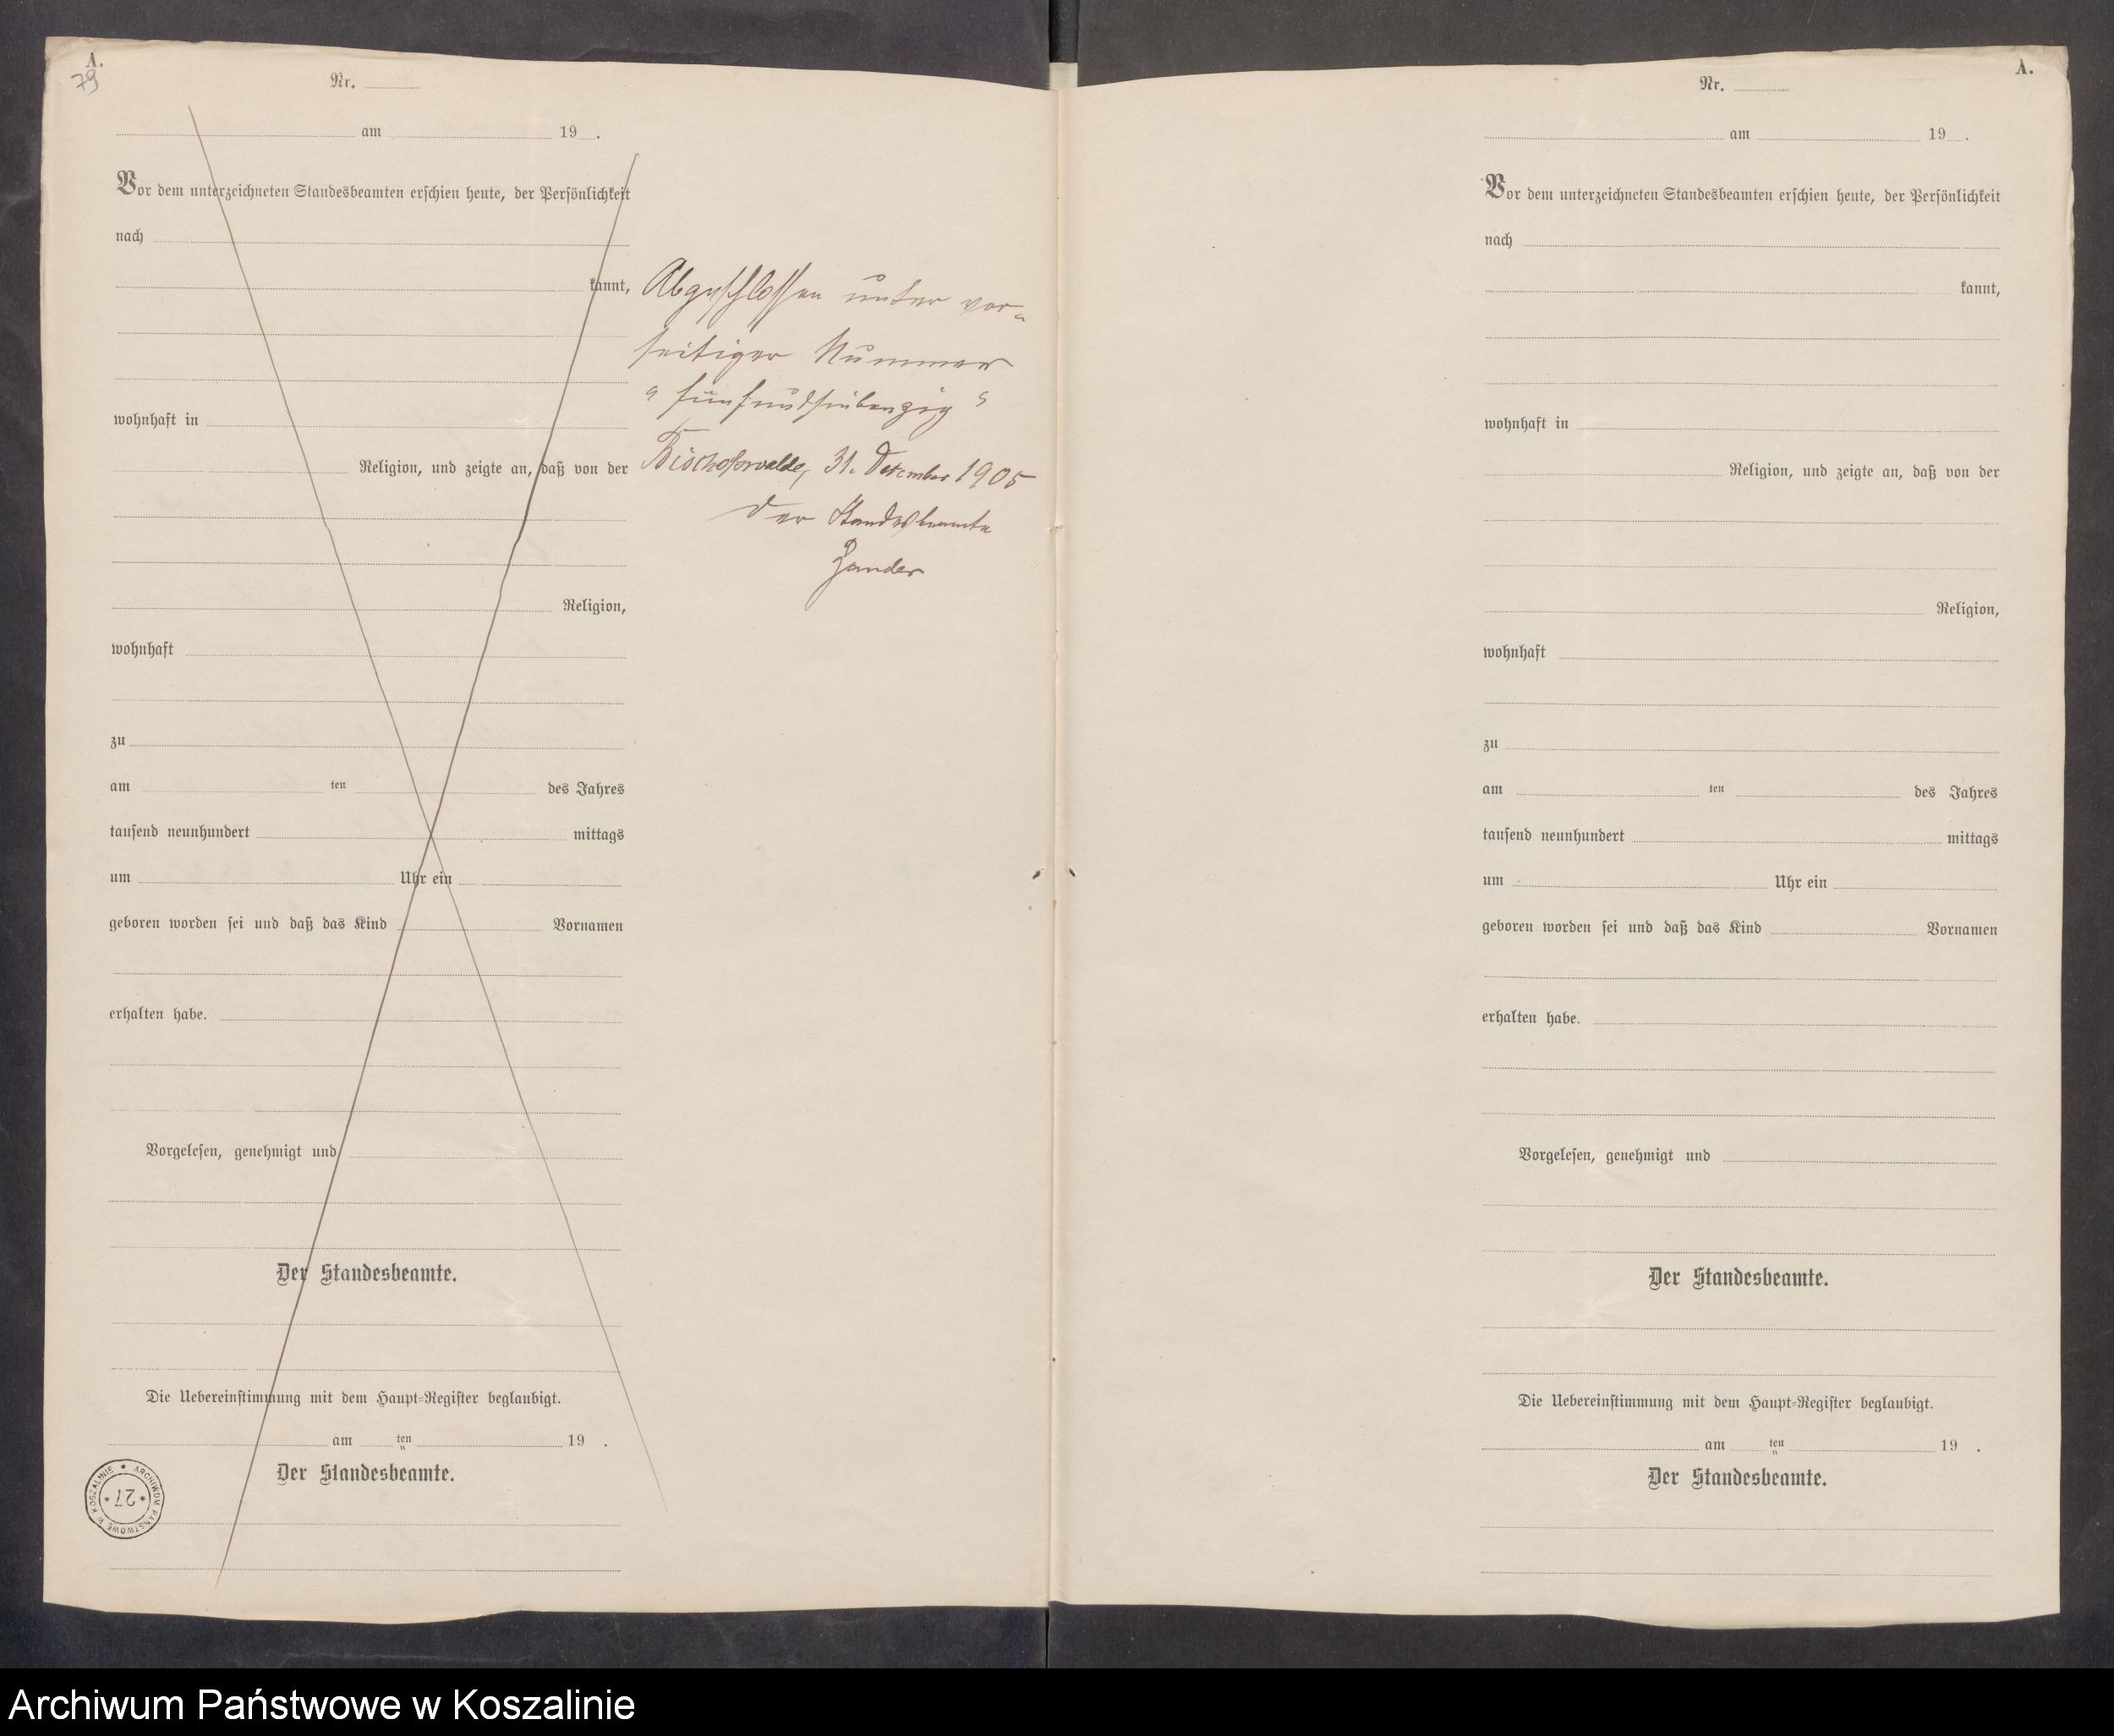 A.
79
Nr.
am 19 .
Vor dem unterzeichneten Standesbeamten erschien heute, der Persönlichkeit
nach
kannt,
wohnhaft in
Religion, und zeigte an, daß von der
Religion,
wohnhaft
zu
am ten des Jahres
tausend neunhundert mittags
um Uhr ein
geboren worden sei und daß das Kind Vornamen
erhalten habe.
Vorgelesen, genehmigt und
Der Standesbeamte.
Die Uebereinstimmung mit dem Haupt-Register beglaubigt.
am ten 19 .
Der Standesbeamte.
ARCHIWUM PAŃSTWOWE W KOSZALINIE * 27 *
Abgeschlossen unter vor-
seitiger Nummer
"fünfundsiebenzig"
Bischofswalde, 31. Dezember 1905
Der Standesbeamte
Zander
A.
Nr.
am 19 .
Vor dem unterzeichneten Standesbeamten erschien heute, der Persönlichkeit
nach
kannt,
wohnhaft in
Religion, und zeigte an, daß von der
Religion,
wohnhaft
zu
am ten des Jahres
tausend neunhundert mittags
um Uhr ein
geboren worden sei und daß das Kind Vornamen
erhalten habe.
Vorgelesen, genehmigt und
Der Standesbeamte.
Die Uebereinstimmung mit dem Haupt-Register beglaubigt.
am ten 19 .
Der Standesbeamte.
Archiwum Państwowe w Koszalinie